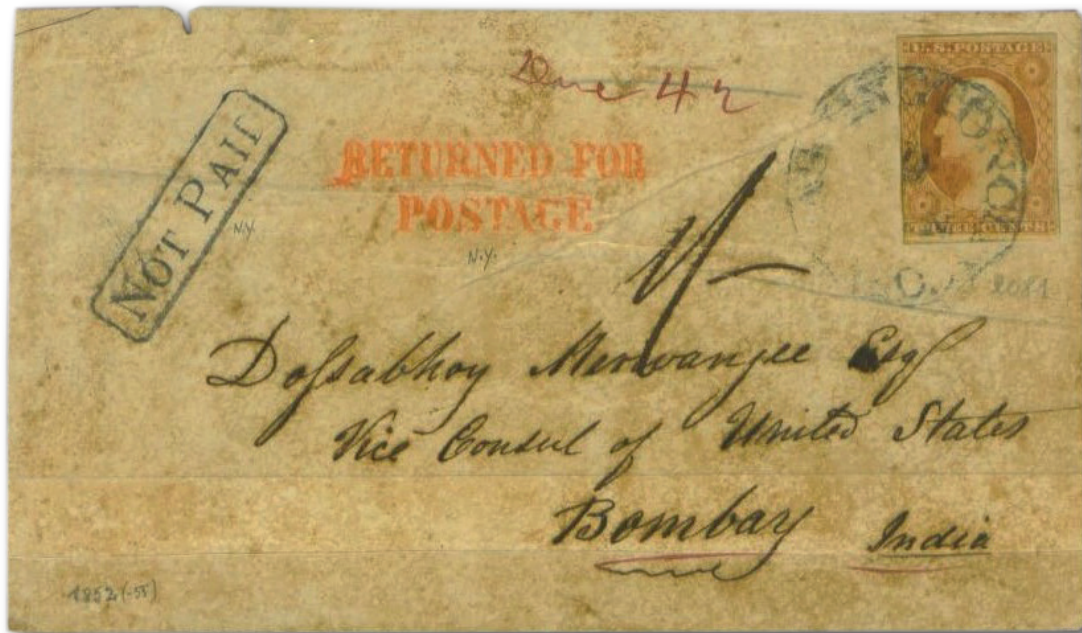 Due 42
U.S. POSTAGE
THREE CENTS
WASHINGTON
D.C.
NOT PAID
RETURNED FOR
POSTAGE
N.Y.
N.Y.
Dossabhoy Merwanjee Esq
Vice Consul of United States
Bombay India
1852 (-55)